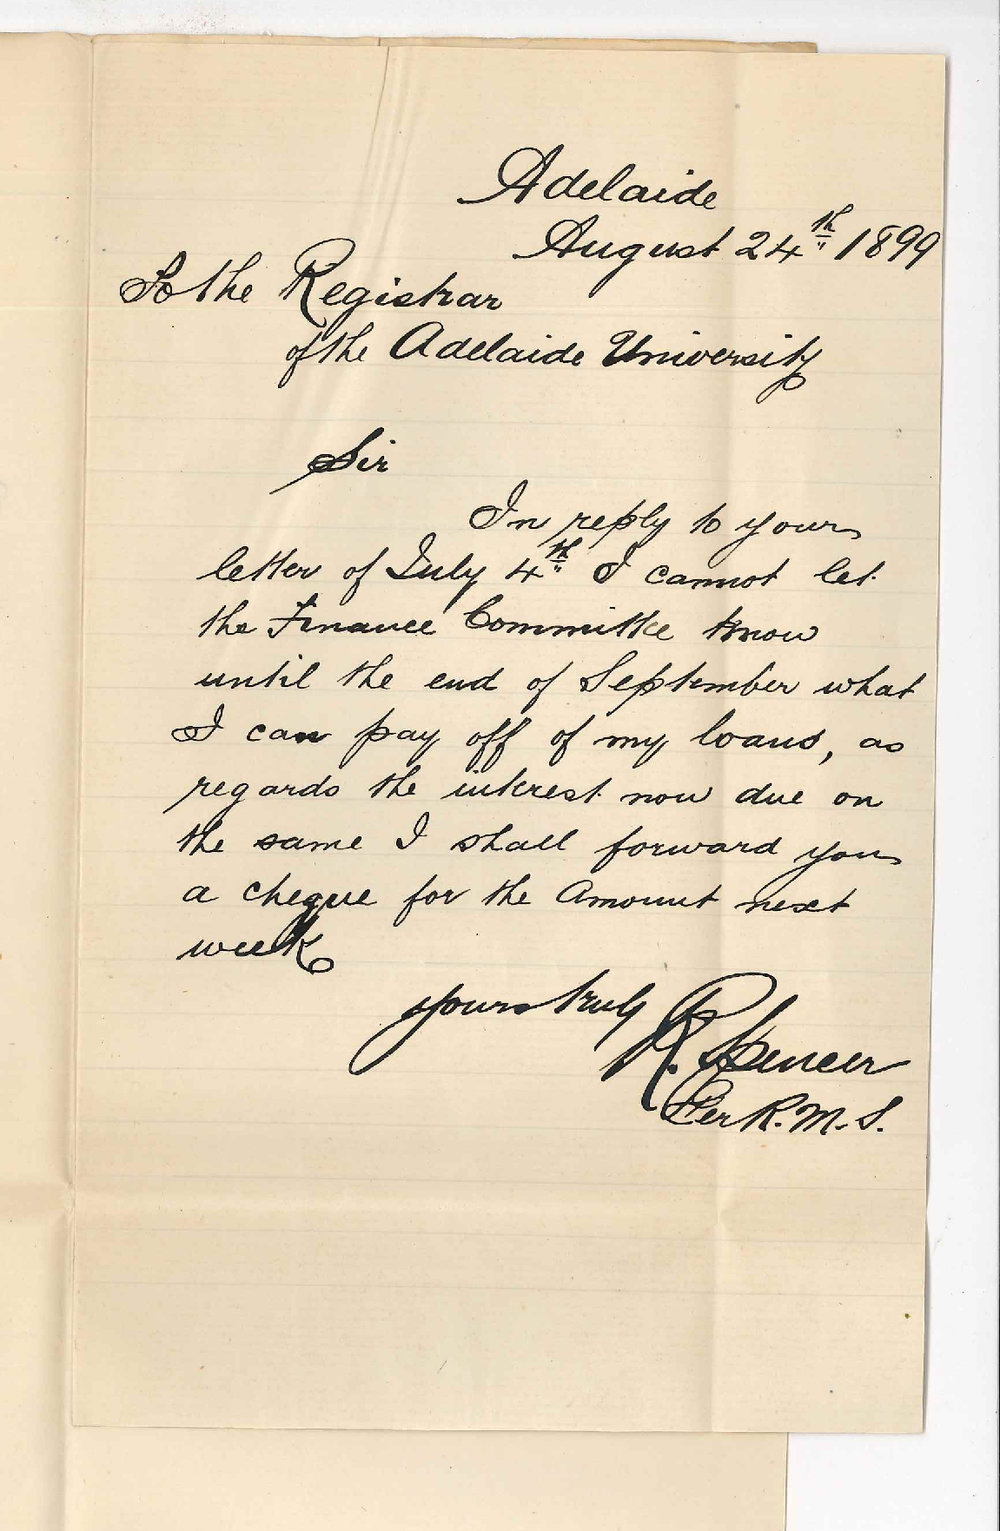 Adelaide
August 24th 1899
To the Registrar
of the Adelaide University
Sir
In reply to your
letter of July 4th I cannot let
the Finance Committee know
until the end of September what
I can pay off of my loans, as
regards the interest now due on
the same I shall forward you
a cheque for the Amount next
week
Yours truly
R. Spencer
Per R. M. S.